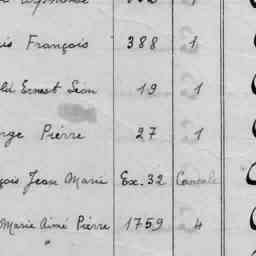 François 388 1
Ernest Léon 19 1
Pierre 27 1
Jean Marie Ex. 32 Cancale
Marie Aimé Pierre 1759 4
"